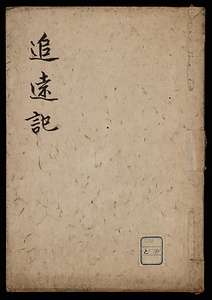 追遠記